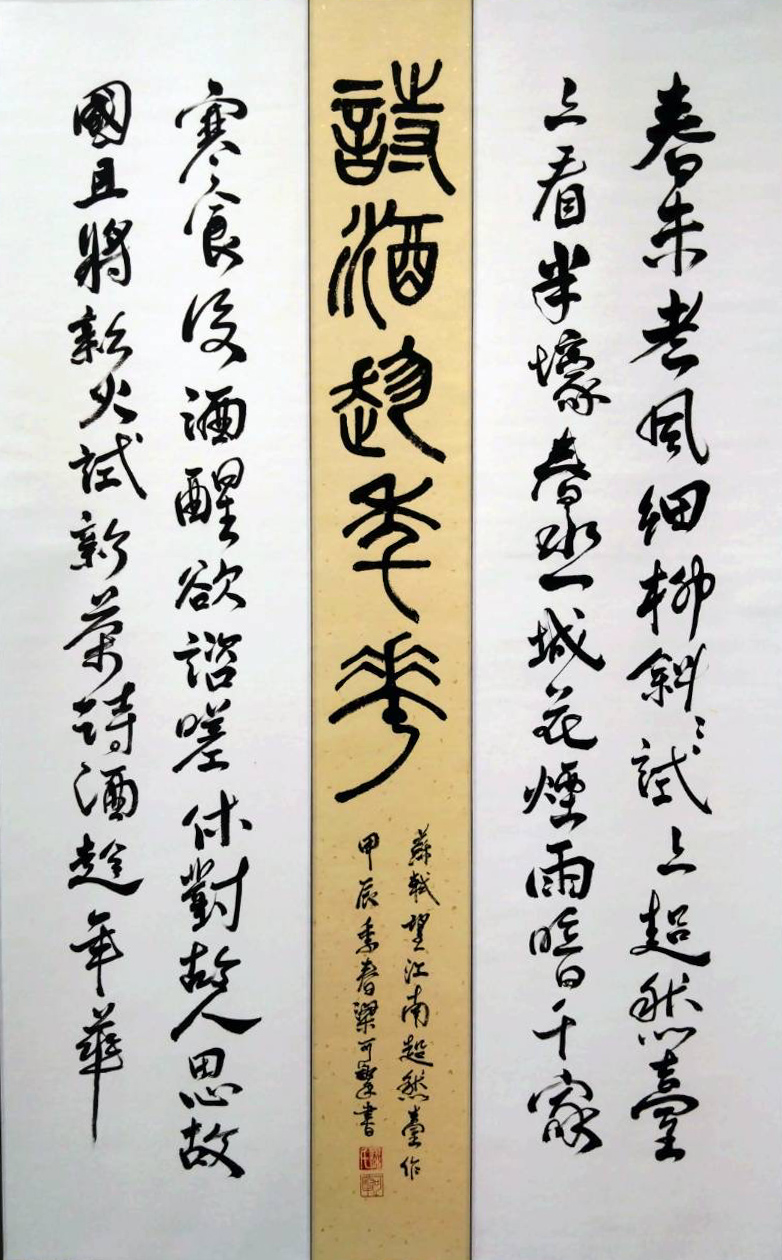 春未老風細柳斜〻試上超然臺
上看半壕春水一城花煙雨暗千家
詩酒趁年華
蘇軾望江南超然臺作
甲辰季春梁可書
寒食後酒醒欲諮嗟休對故人思故
國且將新火試新茶詩酒趁年華